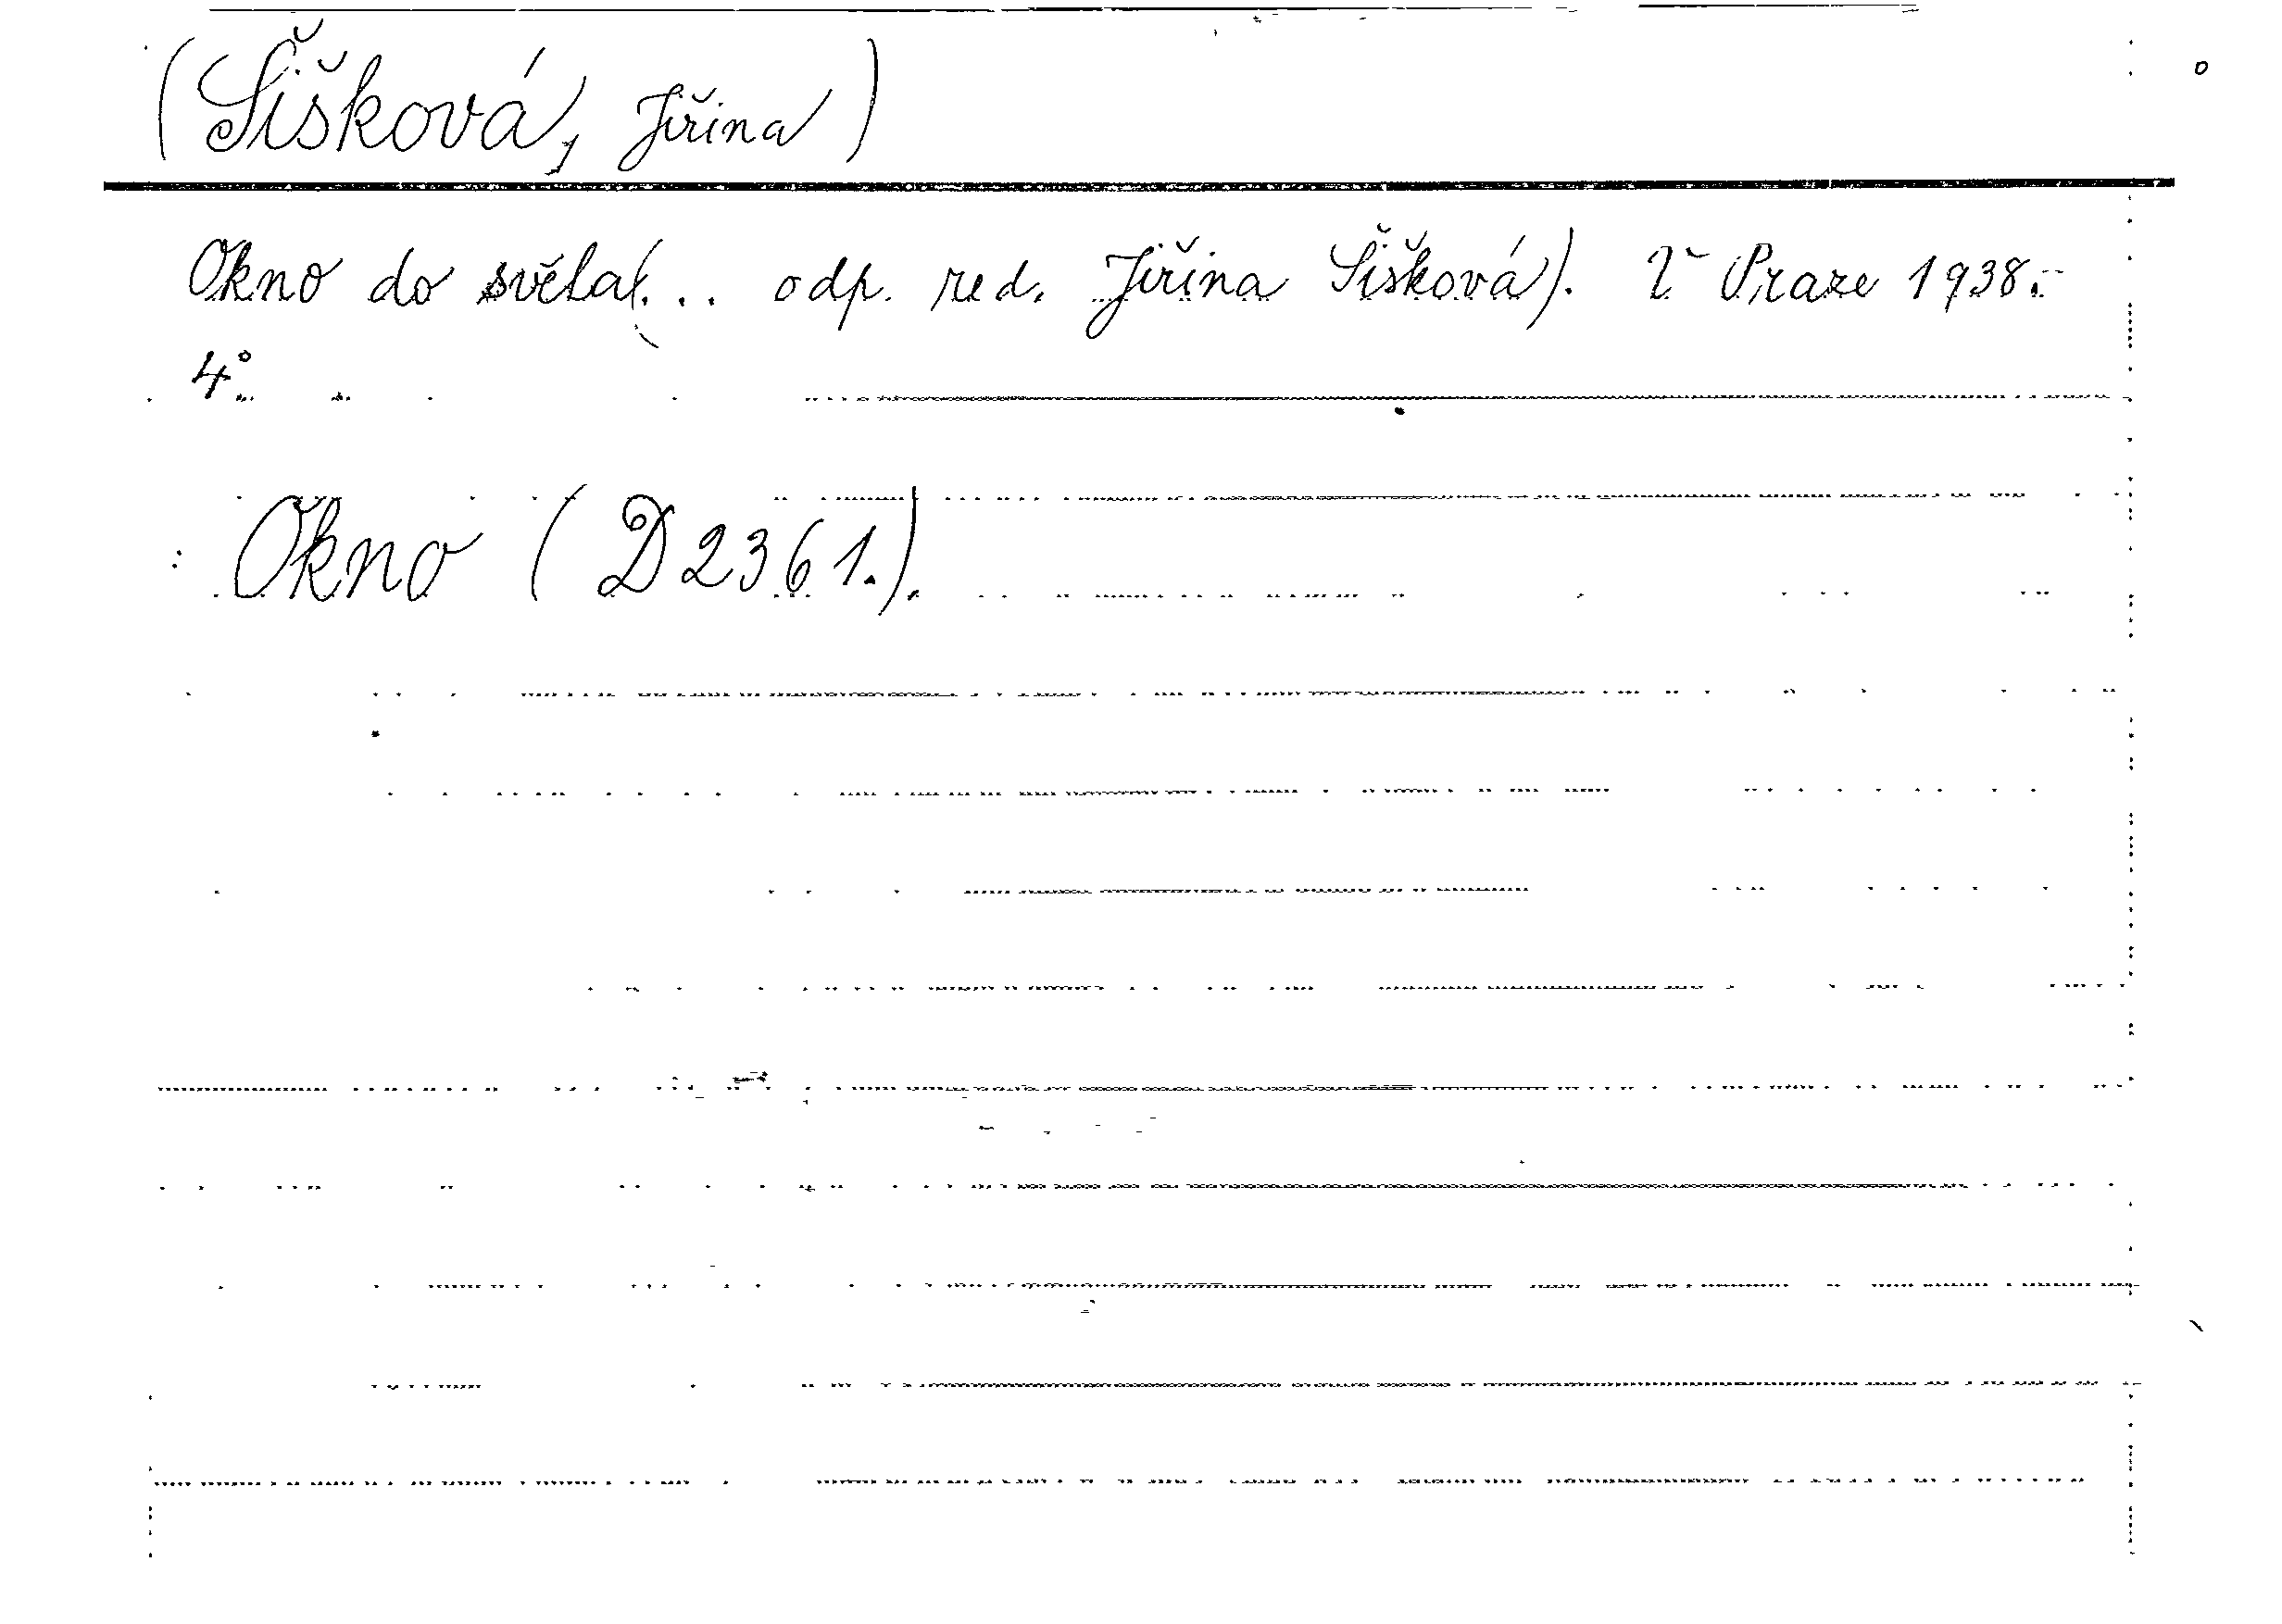 (Šišková, Jiřina)
Okno do světa(... odp. red. Jiřina Šišková). V Praze 1938.-
4°
Okno (D 2361.).